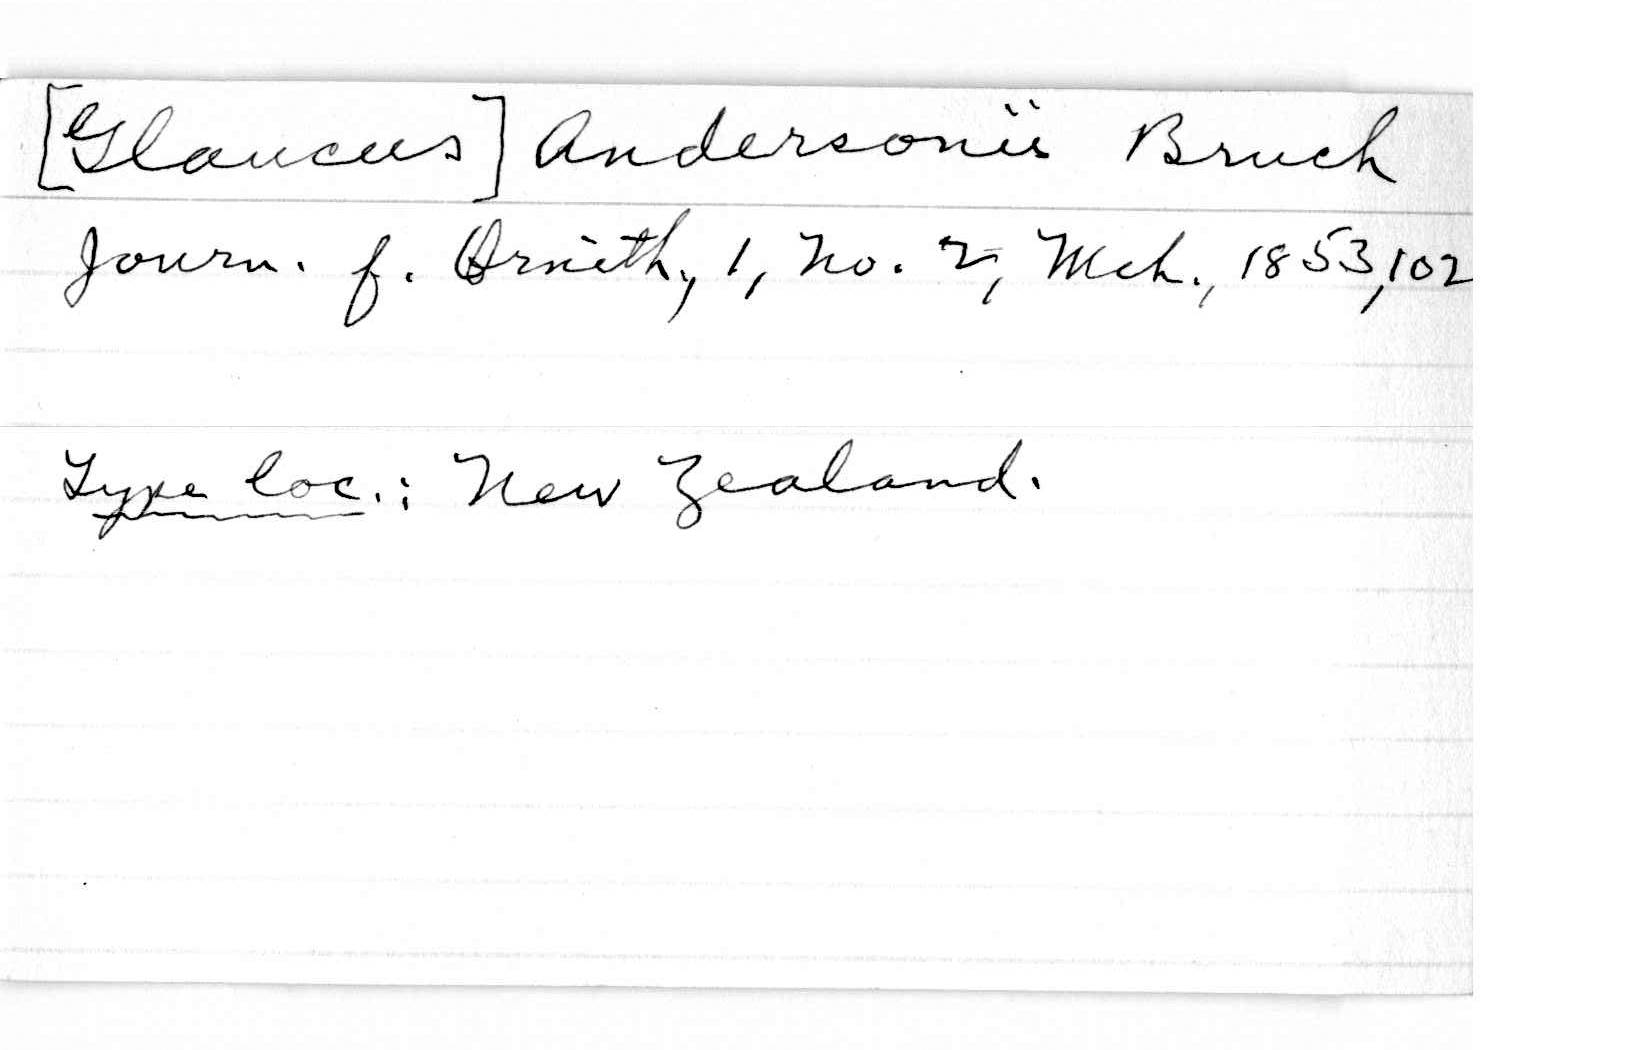 [Glaucus] Andersonii Bruch
Journ. f. Ornith., 1, no. 2, Mch., 1853, 102
Type loc.: New Zealand.